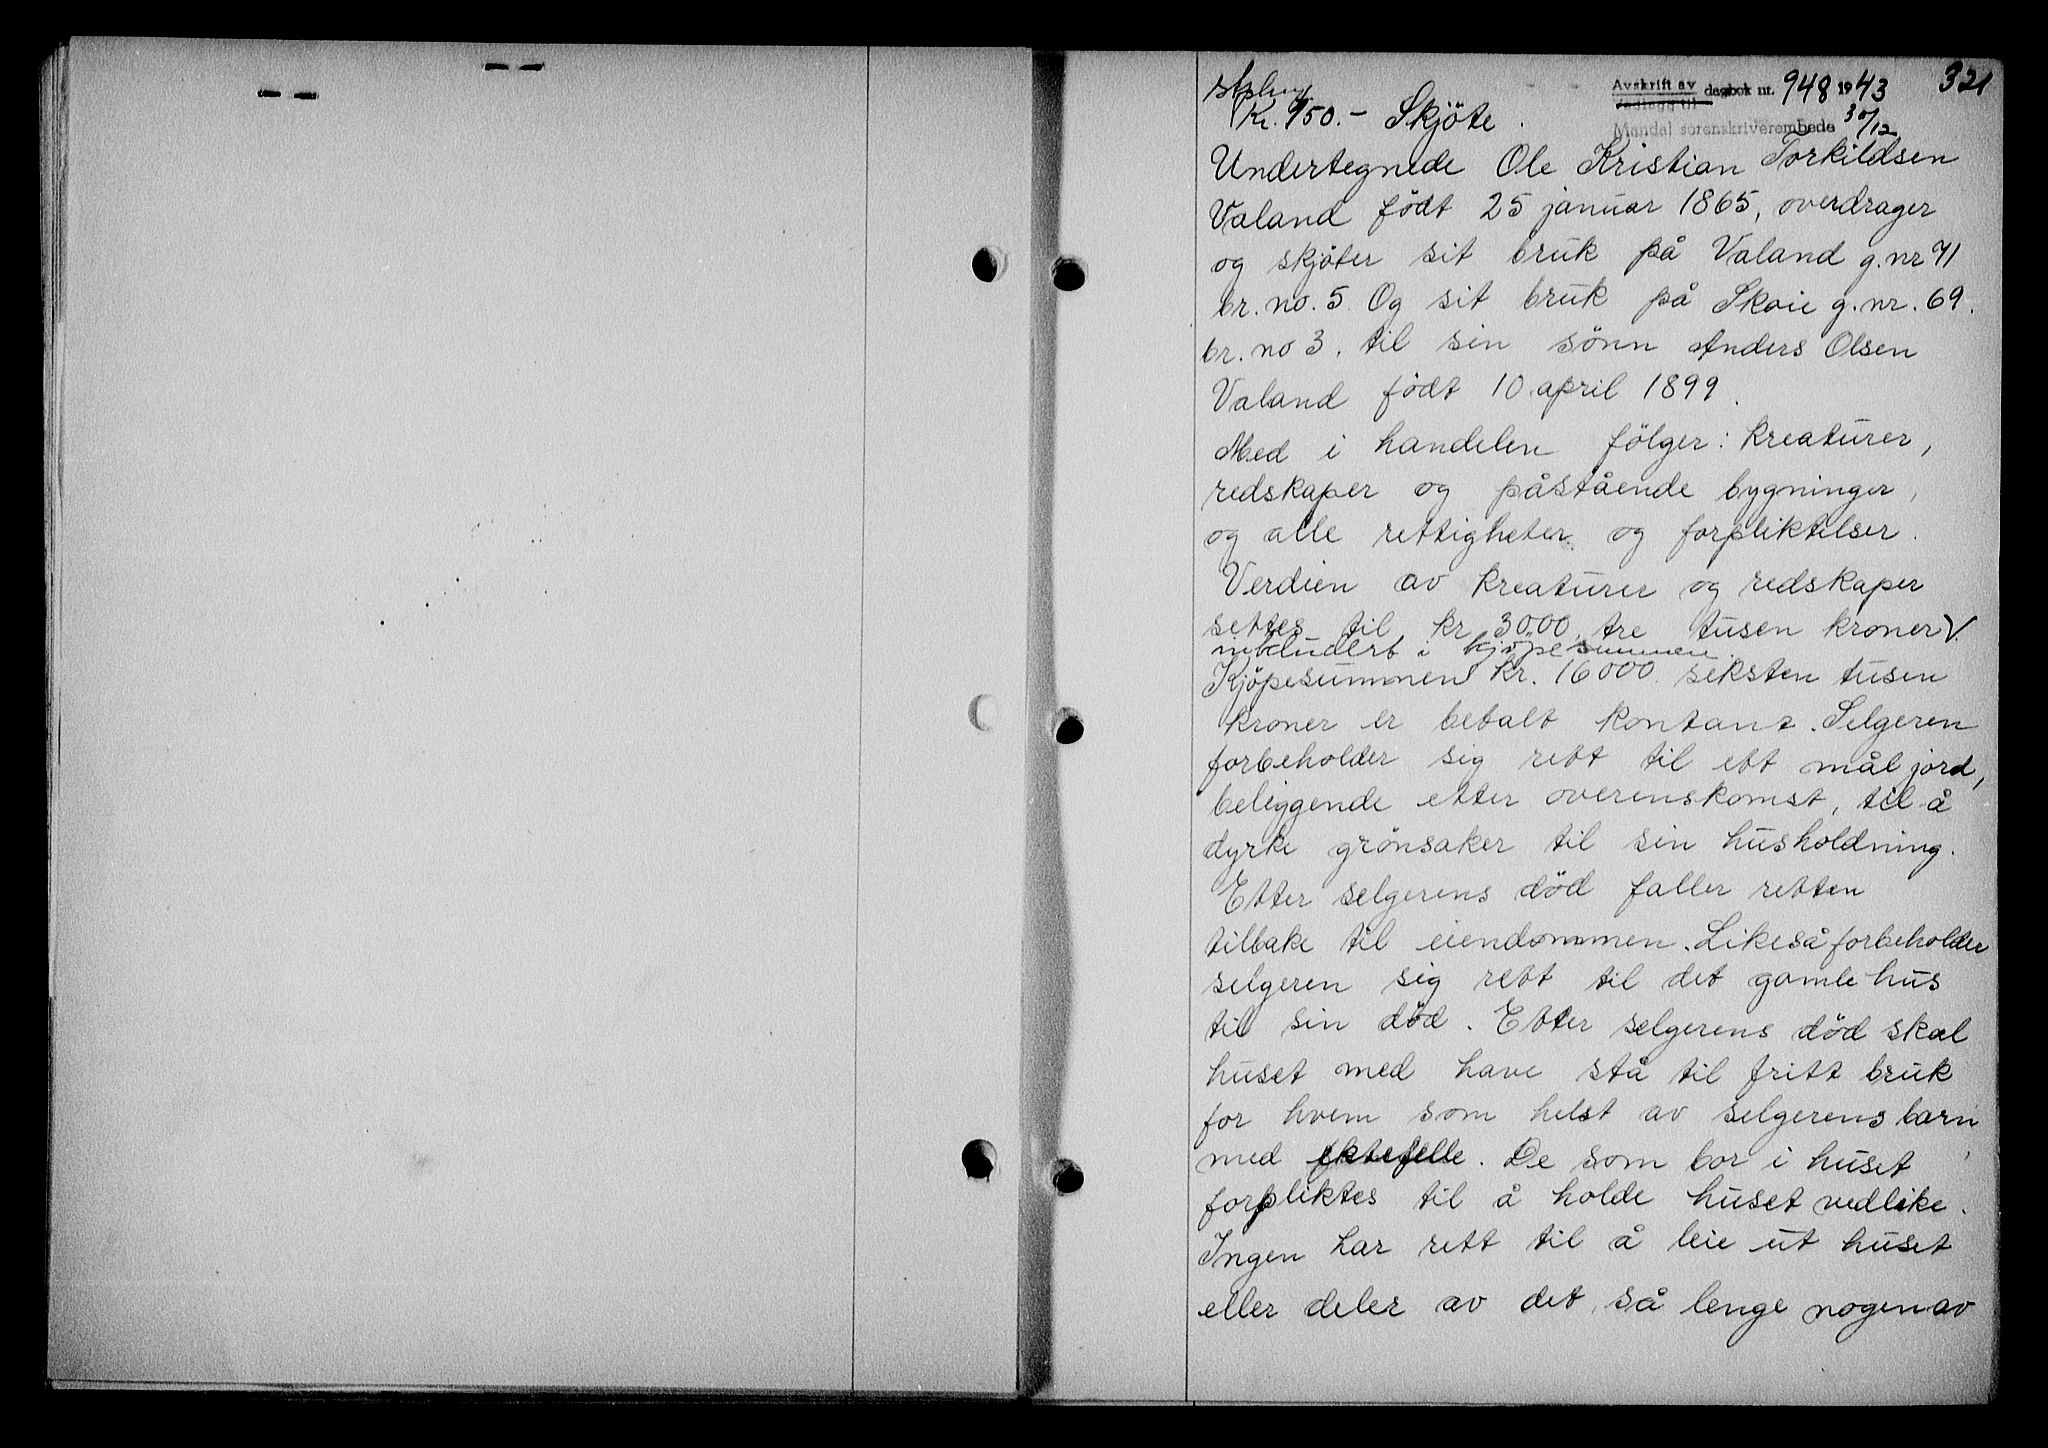 Avskrift av dagbok nr. 948 1943 321
vedlegg til
Mandal sorenskriverembede 30/12
Kr. 150.- Skjöte.
Undertegnede Ole Kristian Torkildsen
Valand födt 25 januar 1865, overdrager
og skjöter sit bruk på Valand g.nr 71
br. no. 5 Og sit bruk på Skoie g. nr. 69.
br. no 3. til sin sönn Anders Olsen
Valand födt 10 april 1899.
Med i handelen fölger: kreaturer,
redskaper og påstående bygninger,
og alle rettigheter og forpliktelser.
Verdien av kreaturer og redskaper
settes til kr 3000, tre tusen kroner V.
inkludert i kjöpesummen.
Kjöpesummen kr. 16000 seksten tusen
kroner er betalt kontant. Selgeren
forbeholder sig rett til ett mål jord,
beliggende etter overenskomst, til å
dyrke grönsaker til sin husholdning.
Etter selgerens död faller retten
tilbake til eiendommen. Likeså forbeholder
selgeren sig rett til det gamle hus
til sin död. Etter selgerens död skal
huset med have stå til fritt bruk
for hvem som helst av selgerens barn
med ektefelle. De som bor i huset,
forpliktes til å holde huset vedlike.
Ingen har rett til å leie ut huset
eller deler av det, så lenge nogen av